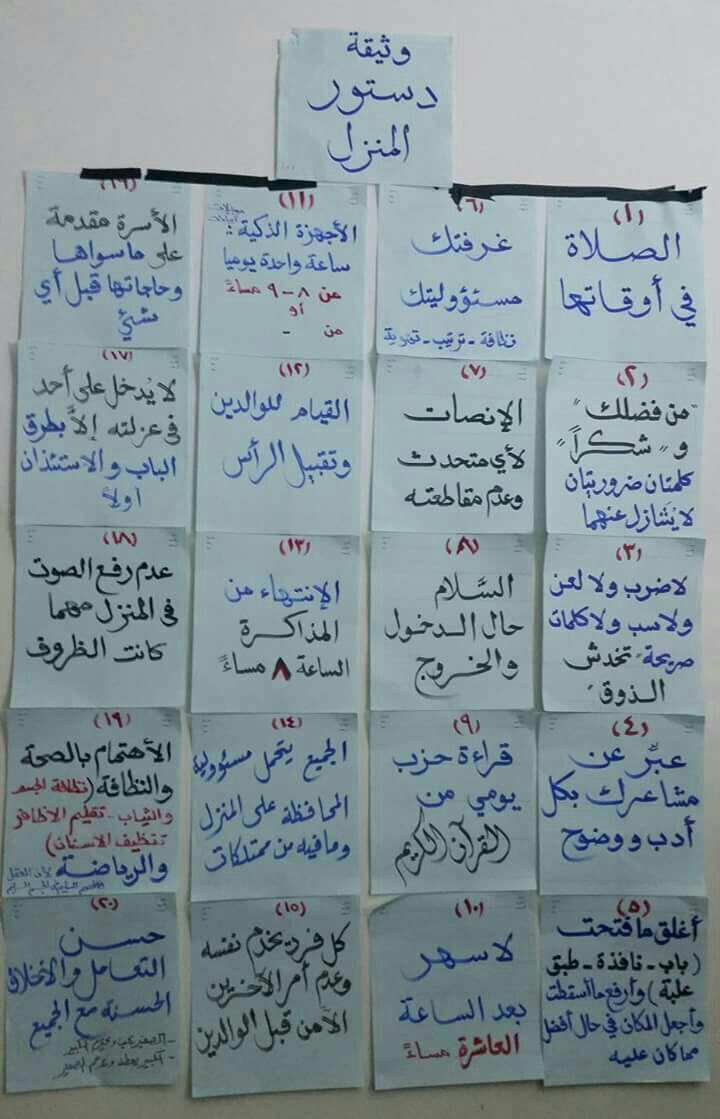 وثيقة
دستور
المنزل
(١)
الصلاة
في أوقاتها
(٢)
"من فضلك"
و"شكراً"
كلمتان ضروريتان
لا يُتنازل عنهما
(٣)
لا ضرب ولا لعن
ولا سب ولا كلمات
صريحة "تخدش
الذوق"
(٤)
عبِّر عن
مشاعرك بكل
أدب ووضوح
(٥)
أغلق ما فتحت
(باب - نافذة - طبق
علبة) وأرفع ما أسقطت
وأجعل المكان في حال أفضل
مما كان عليه
(٦)
غرفتك
مسئووليتك
نظافة - ترتيب - تهوية
(٧)
الإنصات
لأي متحدث
وعدم مقاطعته
(٨)
السَّلام
حال الدخول
والخروج
(٩)
قراءة حزب
يومي من
القرآن الكريم
(١٠)
لا سهر
بعد الساعة
العاشرة مساءً
(١١)
الأجهزة الذكية:
ساعة واحدة يوميا
من ٨ - ٩ مساءً
أو
من -
(١٢)
القيام للوالدين
وتقبيل الرأس
(١٣)
الإنتهاء من
المذاكرة
الساعة ٨ مساءً
(١٤)
الجميع يتحمل مسئوولية
المحافظة على المنزل
وما فيه من ممتلكات
(١٥)
كل فرد يخدم نفسه
وعدم أمر الآخرين
إلا من قبل الوالدين
(١٦)
الأسرة مقدمة
على ما سواها
وحاجاتها قبل أي
شئ
(١٧)
لا يُدخل على أحد
في عزلته إلاَّ بطرق
الباب والاستئذان
اولاً
(١٨)
عدم رفع الصوت
في المنزل مهما
كانت الظروف
(١٩)
الأهتمام بالصحة
والنظافة (نظافة الجسم
والثياب - تقليم الاظافر
تنظيف الاسنان)
والرياضة لأن العقل
السليم في الجسم السليم
(٢٠)
حسن
التعامل والأخلاق
الحسنة مع الجميع
- الصغير يحب ويحترم الكبير
- الكبير يعطف ويرحم الصغير